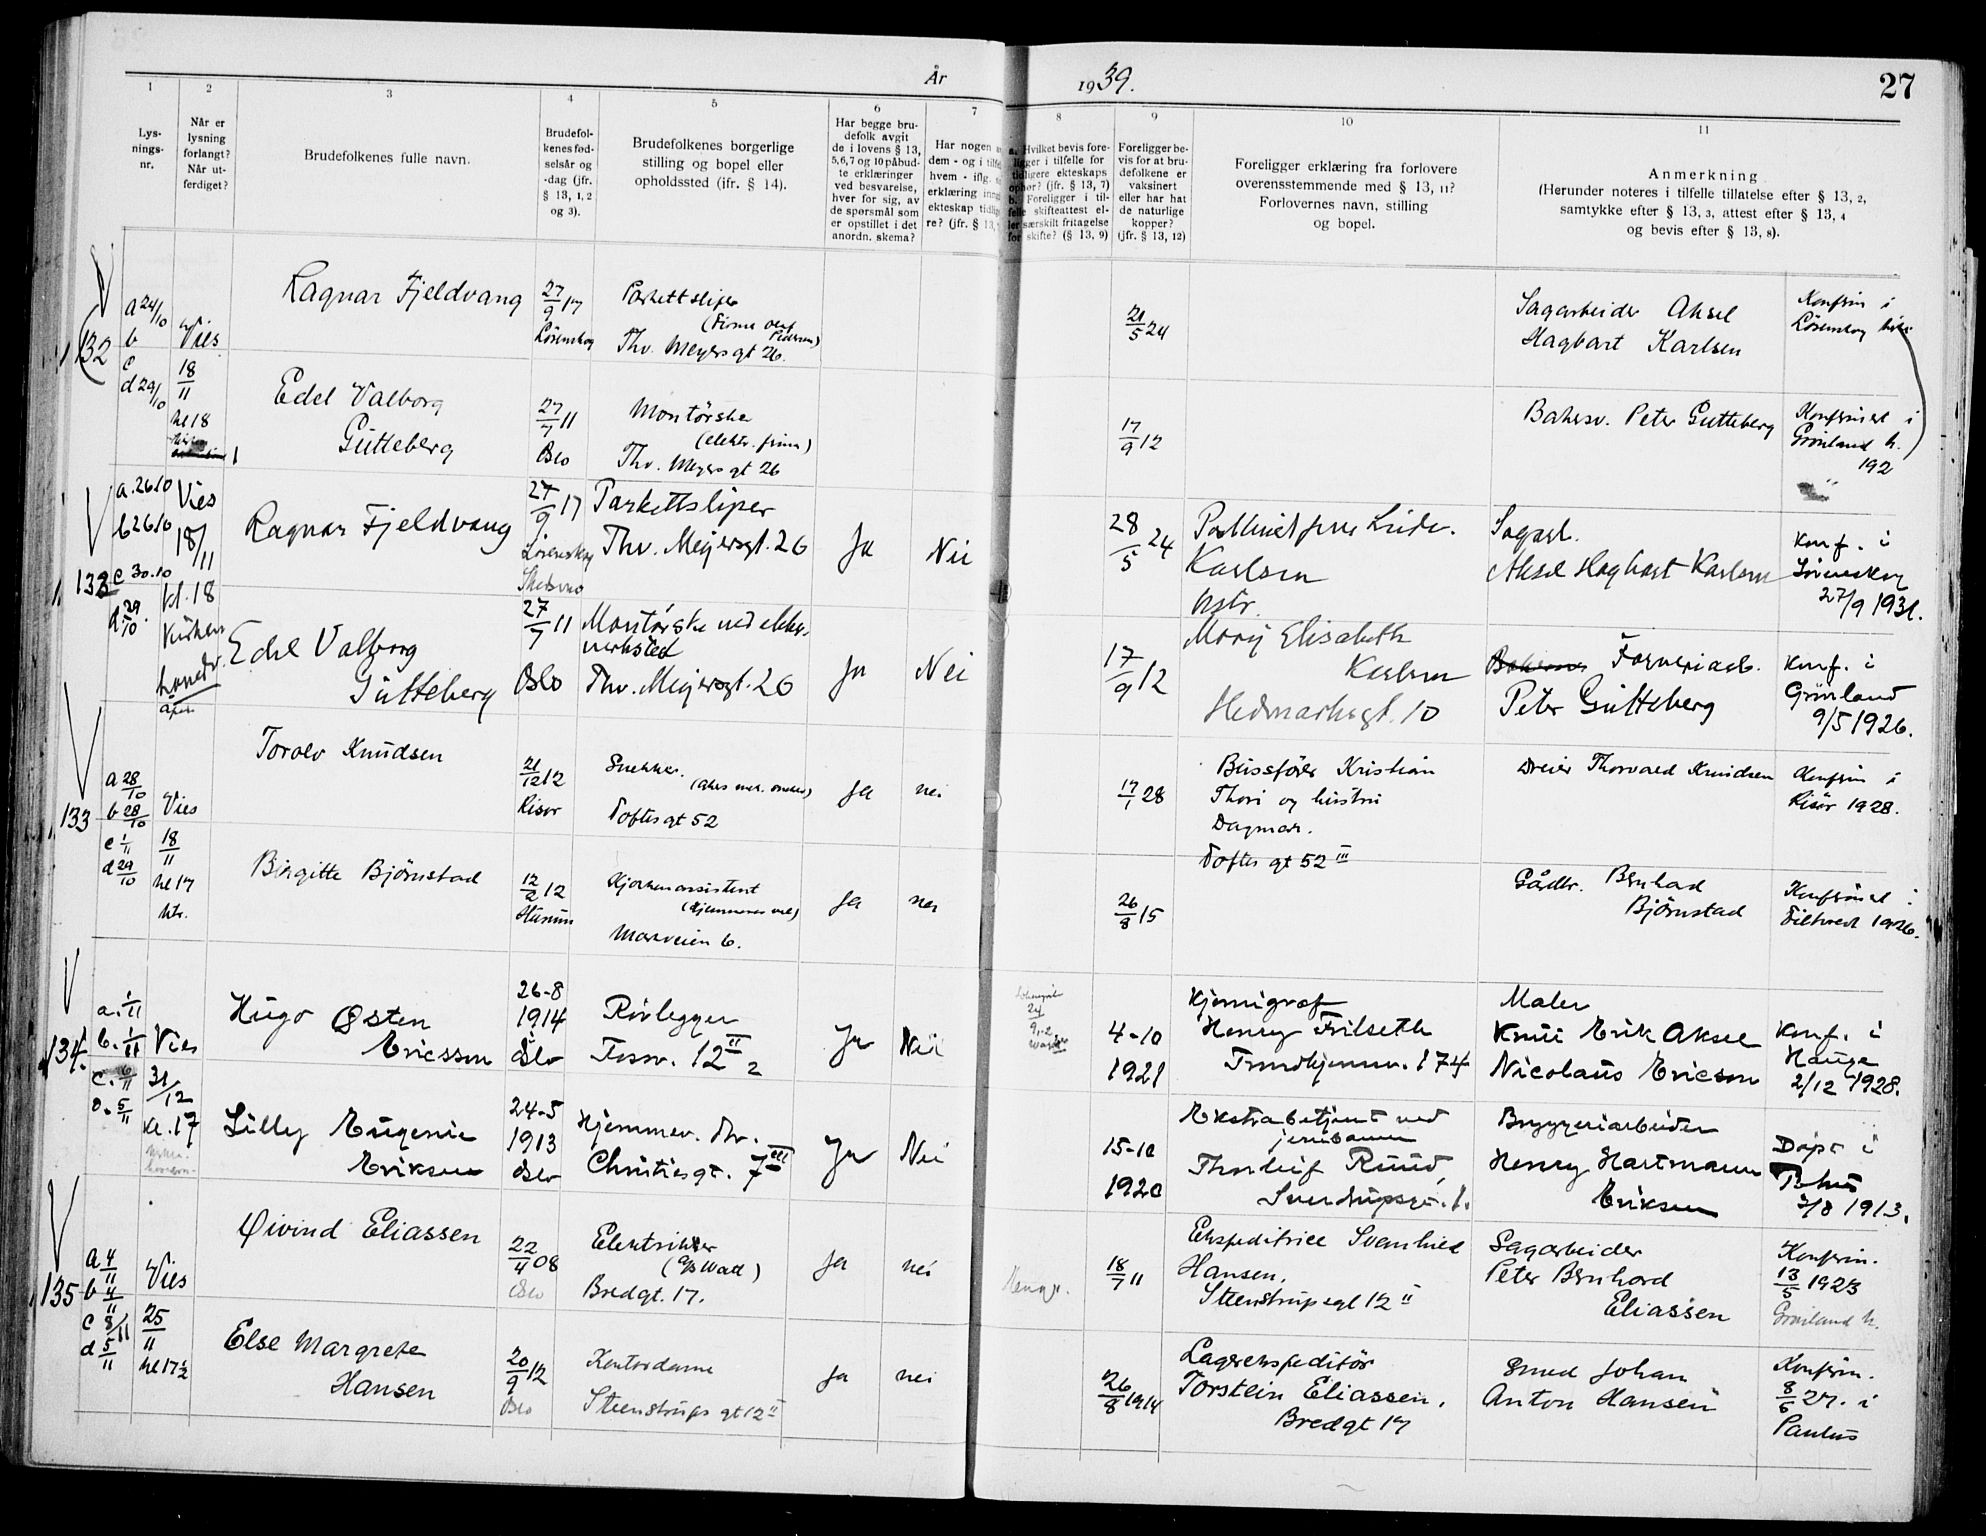 År 1939.
27
1 2 3 4 5 6 7 8 9 10 11
Lys-
nings-
nr.
Når er
lysning
forlangt?
Når ut-
ferdiget?
Brudefolkenes fulle navn.
Brudefol-
kenes fød-
selsår og
-dag (jfr.
§ 13, 1, 2
og 3).
Brudefolkenes borgerlige
stilling og bopel eller
opholdssted (jfr. § 14).
Har begge bru-
defolk avgit
de i lovens § 13,
5,6,7 og 10 påbud-
te erklæringer
ved besvarelse,
hver for sig, av
de spørsmål som
er opstillet i det
anordn. skema?
Har nogen
dem - og i
hvem - iflg.
erklæring
ekteskap
re? (jfr. § 13,
a. Hvilket bevis fore-
ligger i tilfelle for
tidligere ekteskaps
ophør? (jfr. § 13, 7)
b. Foreligger i til-
felle skifteattest el-
ler særskilt fritagelse
for skifte? (§ 13, 9)
Foreligger be-
vis for at bru-
defolkene er
vaksinert
eller har hat
de naturlige
kopper?
(jfr. § 13, 12)
Foreligger erklæring fra forlovere
overensstemmende med § 13, 11?
Forlovernes navn, stilling
og bopel.
Anmerkning
(Herunder noteres i tilfelle tillatelse efter § 13, 2,
samtykke efter § 13, 3, attest efter § 13, 4
og bevis efter § 13, 8).
132
a 24/10
b
c
d 29/10
Vies
18/11
kl 18
Ragnar Fjeldvang
27/9 17
Lörenskog
Parkettsliper
(Firma Olaf
Pedersen)
Thv. Meyersgt 26.
21/5 24
Sagarbeider Aksel
Hagbart Karlsen
Konfirm i
Lörenskog
Edel Valborg
Gutteberg
27/7 11
Oslo
Montörske
(elektr. firma)
Thv. Meyers gt 26
17/9 12
Bakesv. Peter Gutteberg
Konfirmert i
Grönland k.
192
133
a. 26 10
b 26 10
c 30.10
d. 29/10.
Vies
18/11
kl. 18
Kirken
Ragnar Fjeldvang
27/9 17
Lörenskog
Parkettsliper
Thv. Meyersgt. 26
Ja
Nei
28/5 24
Karlsen
Sagarb.
Aksel Hagbart Karlsen
Konf. i
Lörenskog
27/9 1931.
Edel Valborg
Gutteberg
27/7 11
Oslo
Montörske ved elektr.
verksted
Thv. Meyersgt. 26
Ja
Nei
17/9 12
Mary Elisabeth
Karlsen
Hedmarksgt. 10
Farveriarb.
Peter Gutteberg
Konf. i
Grönland
9/5 1926.
133
a 28/10
b 28/10
c 1/11
d 29/10
Vies
18/11
kl 17
Torolv Knudsen
21/12 12
Risør
Snekker.
Toftes gt 52
Ja
nei
17/1 28
Bussfører Kristian
Thori og hustru
Dagmar.
Toftes gt 52 III
Dreier Thorvald Knudsen
Konfirm i
Risör 1928.
Birgitte Björnstad
12/2 12
Hjemmeassistent
Marveien 6.
Ja
nei
26/8 15
Gårdbr. Bernhard
Björnstad
Konfirmert i
1926.
134.
a. 1/11
b. 1/11
c. 6/11
d. 5/11
Vies
31/12
kl. 17
Hugo Østen
Ericsson
26-8
1914
Oslo
Rörlegger
Fossv. 12 II 2
Ja
Nei
4-10
1921
Kjemigraf
Henry Frilseth
Trondhjemsv. 174
Maler
Knut Erik Aksel
Nicolaus Ericson
Konf. i
Hauge
2/12 1928.
Lilly Eugenie
Eriksen
24-5
1913
Oslo
Hjemmev. Thv.
Christiesgt. 7 III
Ja
Nei
15-10
1920
Ekstrabetjent ved
jernbanen
Thorleif Ruud
Sverdrupsgt. 1.
Bryggeriarbeider
Henry Hartmann
Eriksen
Döpt i
3/8 1913.
135
a 4/11
b 4/11
c 8/11
d 5/11
Vies
25/11
kl 17½
Øivind Eliassen
22/4 08
Oslo
Elektriker
(A/S Watt)
Bredgt. 17.
Ja
nei
18/7 11
Ekspeditrice Svanhild
Hansen.
Steenstrupsgt 12 II
Sagarbeider
Peter Bernhard
Eliassen
Konfirm.
13/5 1923
Grönland k.
Else Margrete
Hansen
20/9 12
Oslo
Kontordame
Steenstrups gt 12 II
Ja
nei
26/8 1914
Lagerekspeditör
Torstein Eliassen.
Bredgt 17
Smed Johan
Anton Hansen
Konfirm.
8/6 27. i
Paulus